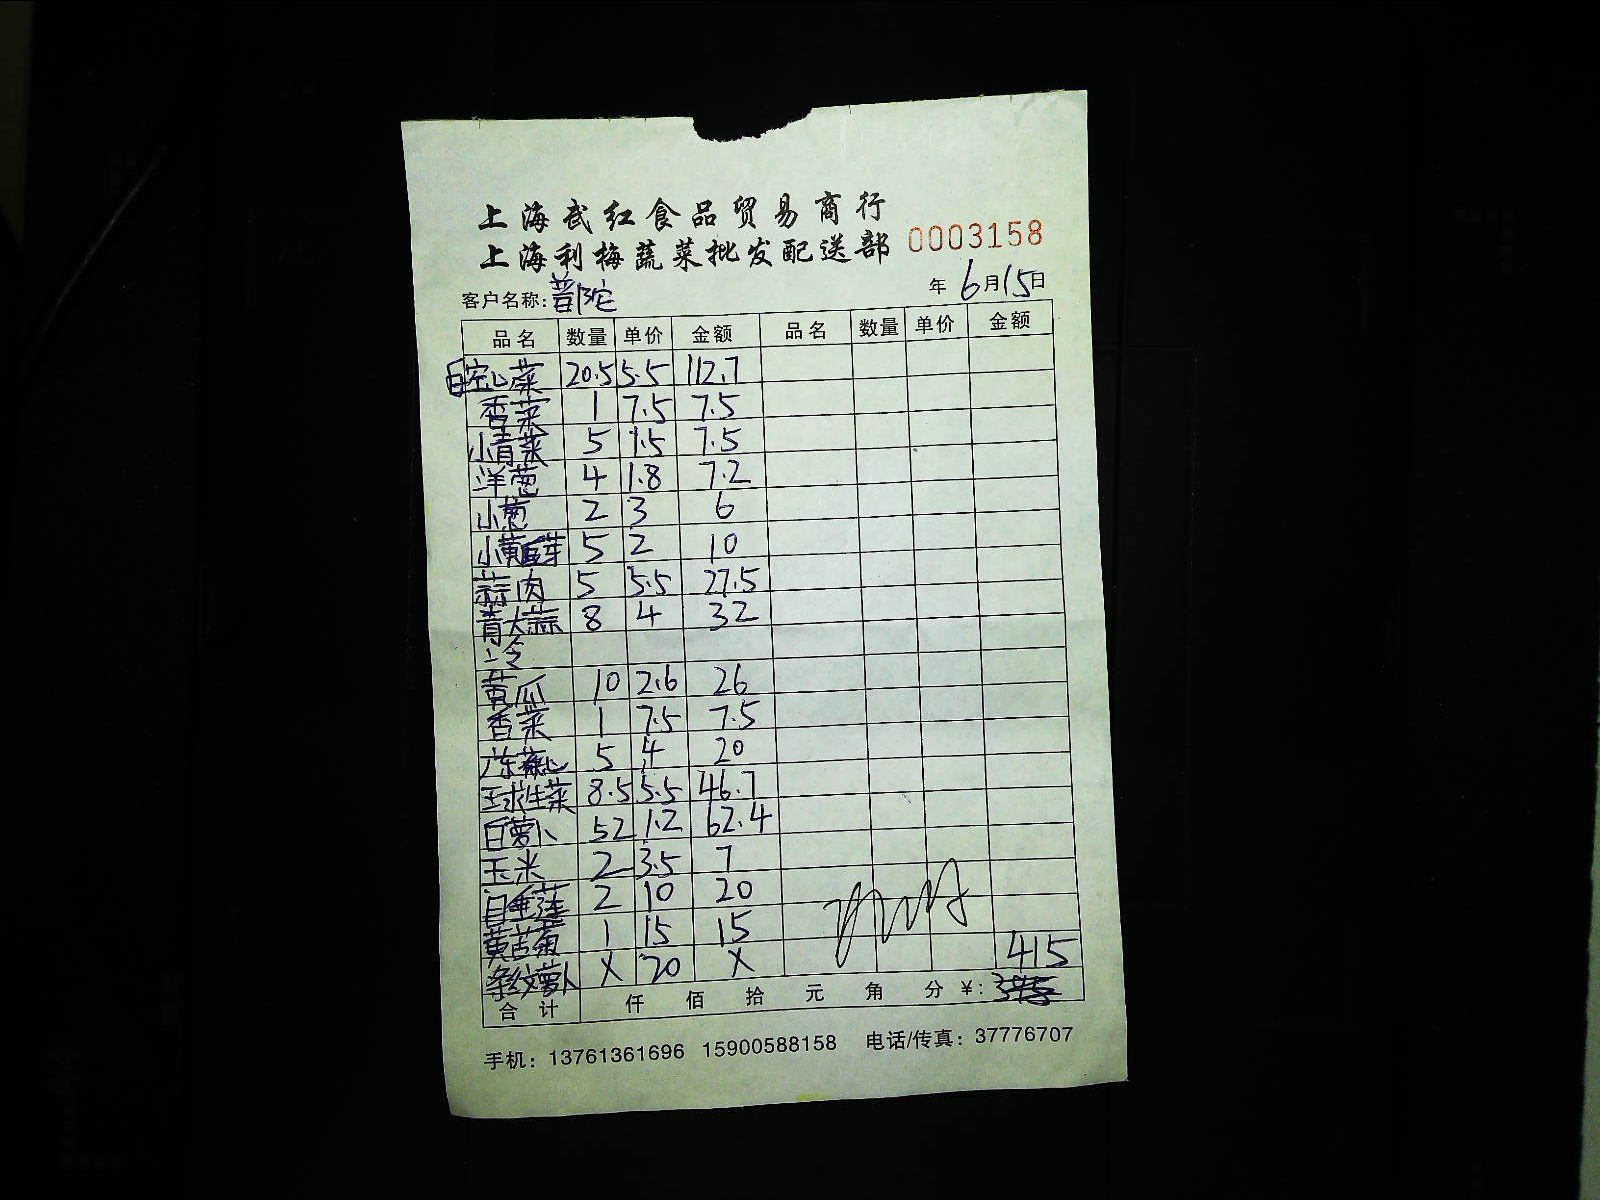 上海武红食品贸易商行
上海利梅蔬菜批发配送部 0003158
客户名称:普陀 年6月15日
品名 数量 单价 金额 品名 数量 单价 金额
白空心菜 20.5 5.5 112.7
香菜 1 7.5 7.5
小青菜 5 1.5 7.5
洋葱 4 1.8 7.2
小葱 2 3 6
小黄豆芽 5 2 10
蒜肉 5 5.5 27.5
青大蒜 8 4 32
冷
黄瓜 10 2.6 26
香菜 1 7.5 7.5
广东菜心 5 4 20
玉球生菜 8.5 5.5 46.7
白萝卜 52 1.2 62.4
玉米 2 3.5 7
2 10 20
黄苦菊 1 15 15
条纹萝卜 X 20 X 415
合计 仟 佰 拾 元 角 分 ¥:
手机:13761361696 15900588158 电话/传真:37776707